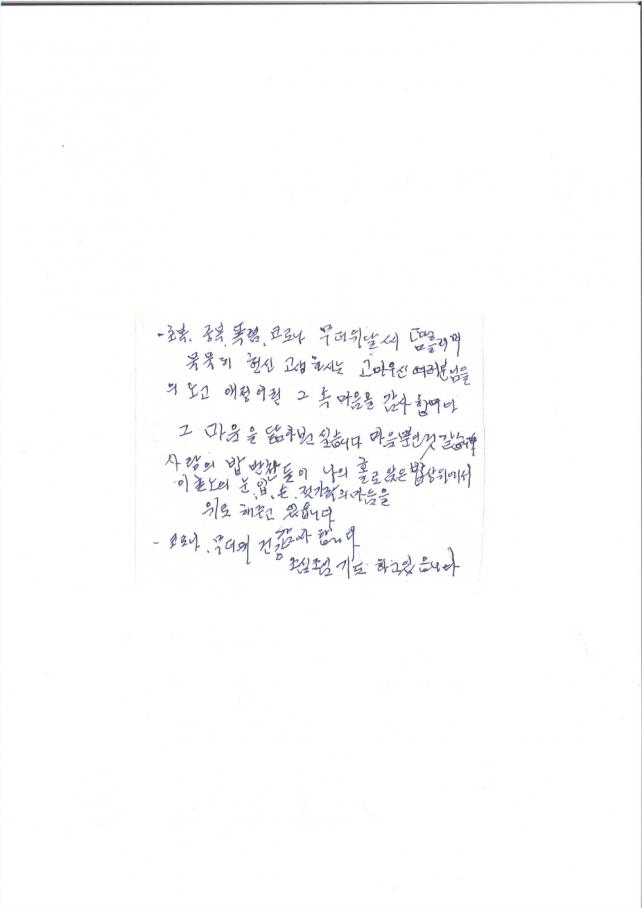 - 초복. 중복. 폭염. 코로나 무더위날씨 땀흘리며
묵묵히 헌신 고생하시는 고마우신 여러분님들
의 노고 애정어린 그 속 마음을 감사하며
그 마음을 싶습니다 마음뿐인것 같습니다
사랑의 밥 반찬들이 나의 홀로 앉은 밥상위에서
이 노의 눈. 입. 손. 젓가락의 마음을
위로 해주고 있습니다
- 코로나. 무더위 건강 감사 합니다
조심조심 기도 하고 있습니다